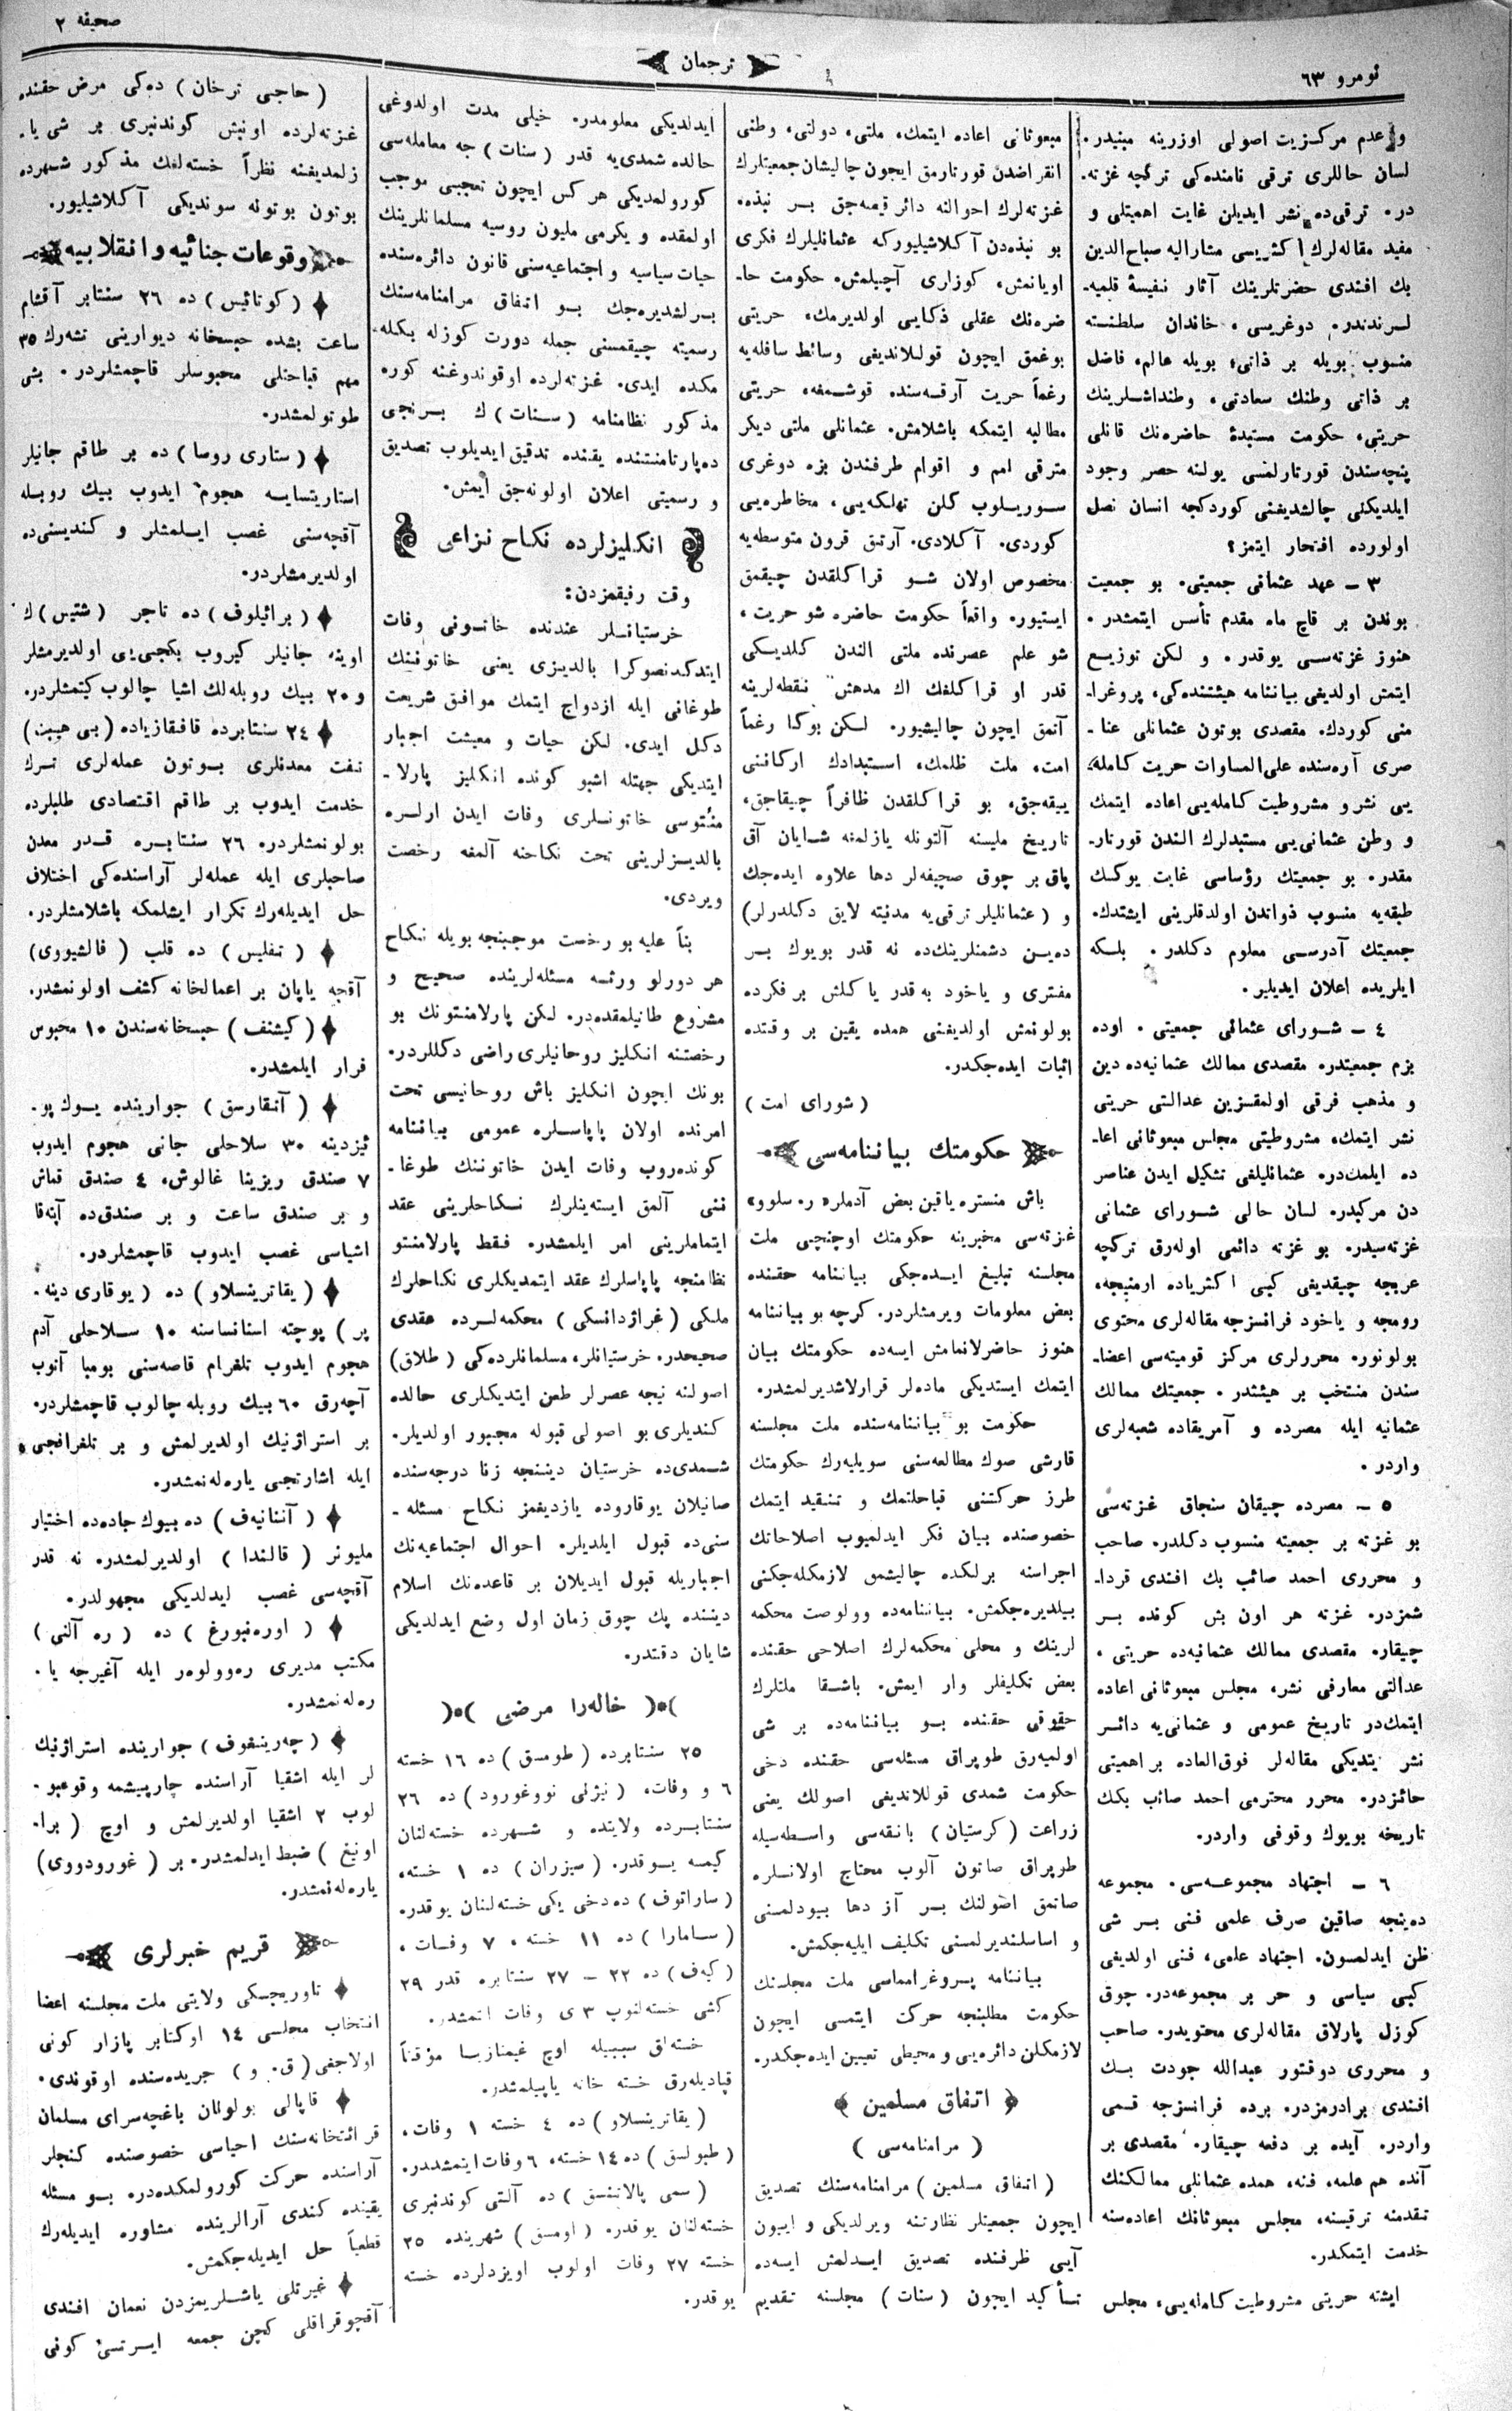 نومرو ٦٣
ترجمان
صحیفه ٢
و عدم مركزيت اصولى اوزرينه مبنيدر.
لسان حاللرى ترقى نامنده‌كى تركجه غزته.
در. ترقى‌ده نشر ايديلن غايت اهميتلى و
مفيد مقاله‌لرك اكثريسى مشاراليه صباح‌الدين
بك افندى حضرتلرينك آثار نفيسۀ قلميه-
لرندندر. دوغريسى، خاندان سلطنته
منسوب بويله بر ذاتى؛ بويله عالم، فاضل
بر ذاتى وطنك سعادتى، وطنداشلرينك
حريتى، حكومت مستبدۀ حاضره‌نك قانلى
پنچه‌سندن قورتارلمسى يولنه حصر وجود
ايلديكنى چالشديغنى كوردكجه انسان نصل
اولورده افتخار ايتمز؟
٣ – عهد عثمانى جمعيتى. بو جمعيت
بوندن بر قاچ ماه مقدم تأسس ايتمشدر.
هنوز غزته‌سى يوقدر. و لكن توزيع
ايتمش اولديغى بياننامه هيئتنده‌كى، پروغرا-
منى كوردك. مقصدى بوتون عثمانلى عنا-
صرى آره‌سنده على‌المساوات حريت كامله
يى نشر و مشروطيت كامله‌يى اعاده ايتمك
و وطن عثمانى‌يى مستبدلرك الندن قورتار-
مقدر. بو جمعيتك رؤساسى غايت يوكسك
طبقه‌يه منسوب ذواتدن اولدقلرينى ايشتدك.
جمعيتك آدرسى معلوم دكلدر. بلكه
ايلريده اعلان ايديلير.
٤ – شوراى عثمانى جمعيتى. اوده
بزم جمعيتدر. مقصدى ممالك عثمانيه‌ده دين
و مذهب فرقى اولمقسزين عدالتى حريتى
نشر ايتمك، مشروطيتى مجلس مبعوثانى اعا-
ده ايلمك‌در. عثمانليلغى تشكيل ايدن عناصر
دن مركبدر. لسان حالى شوراى عثمانى
غزته‌سيدر. بو غزته دائمى اوله‌رق تركچه
عربجه چيقديغى كبى اكثرياده ارمنيجه،
رومجه و ياخود فرانسزجه مقاله‌لرى محتوى
بولونور. محررلرى مركز قوميته‌سى اعضا-
سندن منتخب بر هيئتدر. جمعيتك ممالك
عثمانيه ايله مصرده و آمريقاده شعبه‌لرى
واردر.
٥ – مصرده چيقان سنجاق غزته‌سى
بو غزته بر جمعيته منسوب دكلدر. صاحب
و محررى احمد صائب بك افندى قردا-
شمزدر. غزته هر اون بش كونده بر
چيقار. مقصدى ممالك عثمانيه‌ده حريتى،
عدالتى معارفى نشر، مجلس مبعوثانى اعاده
ايتمك‌در تاريخ عمومى و عثمانى‌يه دائر
نشر يتديكى مقاله‌لر فوق‌العاده بر اهميتى
حائزدر. محرر محترمى احمد صائب بكك
تاريخه بويوك وقوفى واردر.
٦ – اجتهاد مجموعه‌سى. مجموعه
ده‌ينجه صاقين صرف علمى فنى بر شى
ظن ايدلمسون. اجتهاد علمى، فنى اولديغى
كبى سياسى و حر بر مجموعه‌در. چوق
كوزل پارلاق مقاله‌لرى محتويدر. صاحب
و محررى دوقتور عبدالله جودت بك
افندى برادرمزدر. برده فرانسزجه قسمى
واردر. آيده بر دفعه چيقار. مقصدى بر
آنده هم علمه، فنه، همده عثمانلى ممالكنك
تقدمنه ترقيسنه، مجلس مبعوثانك اعاده‌سنه
خدمت ايتمكدر.
ايشته حريتى مشروطيت كامله‌يى، مجلس
مبعوثانى اعاده ايتمك، ملتى، دولتى، وطنى
انقراضدن قورتارمق ايچون چاليشان جمعيتلرك
غزته‌لرك احوالنه دائر قيصه‌جق بر نبذه.
بو نبذه‌دن آكلاشيليوركه عثمانليلرك فكرى
اويانمش، كوزلرى آچيلمش. حكومت حا-
ضره‌نك عقلى ذكايى اولديرمك، حريتى
بوغمق ايچون قوللانديغى وسائط سافله‌يه
رغماً حريت آرقه‌سنده قوشمغه، حريتى
مطالبه ايتمكه باشلامش. عثمانلى ملتى ديكر
مترقى امم و اقوام طرفندن بزه دوغرى
سوريلوب كلن تهلكه‌يى، مخاطره‌يى
كوردى. آكلادى. آرتق قرون متوسطه‌يه
مخصوص اولان شو قراكلقدن چيقمق
ايستيور. واقعاً حكومت حاضره شو حريت،
شو علم عصرنده ملتى الندن كلديكى
قدر او قراكلغك اك مدهش نقطه‌لرينه
آتمق ايچون چاليشيور. لكن بوكا رغماً
امت، ملت ظلمك، استبدادك اركاننى
ييقه‌جق، بو قراكلقدن ظافراً چيقاجق،
تاريخ مليسنه آلتونله يازلمغه شايان آق
پاق بر چوق صحيفه‌لر دها علاوه ايده‌جك
و (عثمانليلر ترقى‌يه مدنيته لايق دكلدرلر)
ده‌ين دشمنلرينك‌ده نه قدر بويوك بر
مفترى و ياخود به قدر ياكلش بر فكرده
بولونمش اولديغنى همده يقين بر وقتده
اثبات ايده‌جكدر.
(شوراى امت)
حكومتك بياننامه‌سى
باش منستره ياقين بعض آدملر «ره‌سلوو»
غزته‌سى مخبرينه حكومتك اوچنچى ملت
مجلسنه تبليغ ايده‌جكى بياننامه حقنده
بعض معلومات ويرمشلردر. كرچه بو بياننامه
هنوز حاضرلانمامش ايسه‌ده حكومتك بيان
ايتمك ايستديكى ماده‌لر قرارلاشديرلمشدر.
حكومت بو بياننامه‌سنده ملت مجلسنه
قارشى صوك مطالعه‌سنى سويليه‌رك حكومتك
طرز حركتنى قباحلتمك و تنقيد ايتمك
خصوصنده بيان فكر ايدلميوب اصلاحاتك
اجراسنه برلكده چاليشمق لازمكله‌جكنى
بيلديره‌جكمش. بياننامه‌ده وولوصت محكمه
لرينك و محلى محكمه‌لرك اصلاحى حقنده
بعض تكليفلر وار ايمش. باشقا ملتلرك
حقوقى حقنده بو بياننامه‌ده بر شى
اولميه‌رق طوپراق مسئله‌سى حقنده دخى
حكومت شمدى قوللانديغى اصولك يعنى
زراعت (كرستيان) بانقه‌سى واسطه‌سيله
طوپراق صاتون آلوب محتاج اولانلره
صاتمق اصولنك بر آز دها بيودلمسنى
و اساسلنديرلمسنى تكليف ايليه‌جكمش.
بياننامه پروغراماسى ملت مجلسنك
حكومت مطلبنجه حركت ايتمسى ايچون
لازمكلن دائره‌يى و محيطى تعيين ايده‌جكدر.
اتفاق مسلمين
(مرامنامه‌سى)
(اتفاق مسلمين) مرامنامه‌سنك تصديق
ايچون جمعيتلر نظارتنه ويرلديكى و اييون
آيى ظرفنده تصديق ايدلمش ايسه‌ده
تأكيد ايچون (سنات) مجلسنه تقديم
ايدلديكى معلومدر. خيلى مدت اولدوغى
حالده شمدى‌يه قدر (سنات) جه معامله‌سى
كورولمديكى هركس ايچون تعجبى موجب
اولمقده و يكرمى مليون روسيه مسلمانلرينك
حيات سياسيه و اجتماعيه‌سنى قانون دائره‌سنده
برلشديره‌جك بو اتفاق مرامنامه‌سنك
رسميته چيقمسنى جمله دورت كوزله بكله-
مكده ايدى. غزته‌لرده اوقوندوغنه كوره
مذكور نظامنامه (سنات)ك برنجى
ده‌پارتامنتنده يقنده تدقيق ايديلوب تصديق
و رسميتى اعلان اولونه‌جق ايمش.
انكليزلرده نكاح نزاعى
وقت رفيقمزدن:
خرستيانلر عندنده خاتونى وفات
ايتدكدنصوكرا بالديزى يعنى خاتوننك
طوغانى ايله ازدواج ايتمك موافق شريعت
دكل ايدى. لكن حيات و معيشت اجبار
ايتديكى جهتله اشبو كونده انكليز پارلا-
منتوسى خاتونلرى وفات ايدن ارلره
بالديزلرينى تحت نكاحنه آلمغه رخصت
ويردى.
بناً عليه بو رخصت موجبنجه بويله نكاح
هر دورلو ورثه مسئله‌لرنده صحيح و
مشروع طانيلمقده‌در. لكن پارلامنتونك بو
رخصتنه انكليز روحانيلرى راضى دكللردر.
بونك ايچون انكليز باش روحانيسى تحت
امرنده اولان پاپاسلره عمومى بياننامه
كوندەروب وفات ايدن خاتوننك طوغا-
ننى آلمق ايسته‌ينلرك نكاحلرينى عقد
ايتماملرينى امر ايلمشدر. فقط پارلامنتو
نظامنجه پاپاسلرك عقد ايتمديكلرى نكاحلرك
ملكى (غراژدانسكى) محكمه‌لرده عقدى
صحيحدر. خرستيانلر، مسلمانلرده‌كى (طلاق)
اصولنه نيجه عصرلر طعن ايتديكلرى حالده
كنديلرى بو اصولى قبوله مجبور اولديلر.
شمدى‌ده خرستيان ديننجه زنا درجه‌سنده
صانيلان يوقاروده يازديغمز نكاح مسئله-
سنى‌ده قبول ايلديلر. احوال اجتماعيه‌نك
اجباريله قبول ايديلان بر قاعده‌نك اسلام
ديننده پك چوق زمان اول وضع ايدلديكى
شايان دقتدر.
خاله‌را مرضى
٢٥ سنتابرده (طومسق) ده ١٦ خسته
٦ و وفات، (نيژنى نووغورود) ده ٢٦
سنتابرده ولايتده و شهرده خسته‌لنان
كيمه يوقدر. (سيزران) ده ١ خسته،
(ساراتوف) ده دخى يكى خسته‌لنان يوقدر.
(سامارا) ده ١١ خسته، ٧ وفات،
(كيەف) ده ٢٢ – ٢٧ سنتابره قدر ٢٩
كشى خسته‌لنوب ٣ ى وفات اتمشدر.
خسته‌لق سببيله اوچ غيمنازيا مؤقتاً
قپاديله‌رق خسته خانه ياپيلمشدر.
(يقاترينسلاو) ده ٤ خسته ١ وفات،
(طبولسق) ده ١٤ خسته، ٦ وفات ايتمشدر.
(سمى پالاتنسق) ده آلتى كوندنبرى
خسته‌لنان يوقدر. (اومسق) شهرينده ٣٥
خسته ٢٧ وفات اولوب اويزدلرده خسته
يوقدر.
(حاجى ترخان) ده‌كى مرض حقنده
غزته‌لرده اونبش كوندنبرى بر شى يا-
زلمديغنه نظراً خسته‌لغك مذكور شهرده
بوتون بوتونه سونديكى آكلاشيليور.
وقوعات جنائيه و انقلابيه
(كوتائيس) ده ٢٦ سنتابر آقشام
ساعت بشده حبسخانه ديوارينى تشه‌رك ٣٥
مهم قباحتلى محبوسلر قاچمشلردر. بشى
طوتولمشدر.
(ستارى روسا) ده بر طاقم جانيلر
استاريتسايه هجوم ايدوب بيك روبله
آقچه‌سنى غصب ايلمشلر و كنديسنى‌ده
اولديرمشلردر.
(برائيلوف) ده تاجر (شتيس)ك
اوينه جانيلر كيروب بكجى‌يى اولديرمشلر
و ٢٠ بيك روبله‌لك اشيا چالوب كيتمشلردر.
٢٤ سنتابرده قافقازياده (بى هيبت)
نفت معدنلرى بوتون عمله‌لرى ترك
خدمت ايدوب بر طاقم اقتصادى طلبلرده
بولونمشلردر. ٢٦ سنتابره قدر معدن
صاحبلرى ايله عمله‌لر آراسنده‌كى اختلاف
حل ايديله‌رك تكرار ايشلمكه باشلامشلردر.
(تفليس) ده قلب (فالشيووى)
آقچه ياپان بر اعمالخانه كشف اولونمشدر.
(كيشنف) حبسخانه‌سندن ١٠ محبوس
فرار ايلمشدر.
(آنقارسق) جوارينده يوك پو-
ئيزدينه ٣٠ سلاحلى جانى هجوم ايدوب
٧ صندق ريزينا غالوش، ٤ صندق قماش
و بر صندق ساعت و بر صندق‌ده آپته‌قا
اشياسى غصب ايدوب قاچمشلردر.
(يقاترينسلاو) ده (يوقارى دينه-
پر) پوچته استانساسنه ١٠ سلاحلى آدم
هجوم ايدوب تلغرام قاصه‌سنى بومبا آتوب
آچه‌رق ٦٠ بيك روبله چالوب قاچمشلردر.
بر استراژنيك اولديرلمش و بر تلغرافجى
ايله اشارتجى ياره‌له‌نمشدر.
(آنانيه‌ف) ده بيوك جاده‌ده اختيار
مليونر (قالندا) اولديرلمشدر. نه قدر
آقچه‌سى غصب ايدلديكى مجهولدر.
(اوره‌نبورغ) ده (ره آلنى)
مكتب مديرى ره‌وولوه‌ر ايله آغيرجه يا-
ره‌له‌نمشدر.
(چه‌رنيغوف) جوارينده استراژنيك
لر ايله اشقيا آراسنده چارپيشمه وقوعبو-
لوب ٢ اشقيا اولديرلمش و اوچ (برا-
اونيغ) ضبط ايدلمشدر. بر (غورودووى)
ياره‌له‌نمشدر.
قريم خبرلرى
تاوريچسكى ولايتى ملت مجلسنه اعضا
انتخاب مجلسى ١٤ اوكتابر پازار كونى
اولاجغى (ق. و) جريده‌سنده اوقوندى.
قاپالى بولونان باغچه‌سراى مسلمان
قرائتخانه‌سنك احياسى خصوصنده كنجلر
آراسنده حركت كورولمكده‌در. بو مسئله
يقينده كندى آرالرينده مشاوره ايديله‌رك
قطعياً حل ايديله‌جكمش.
غيرتلى ياشلريمزدن نعمان افندى
آقچوقراقلى كچن جمعه ايرتسى كونى